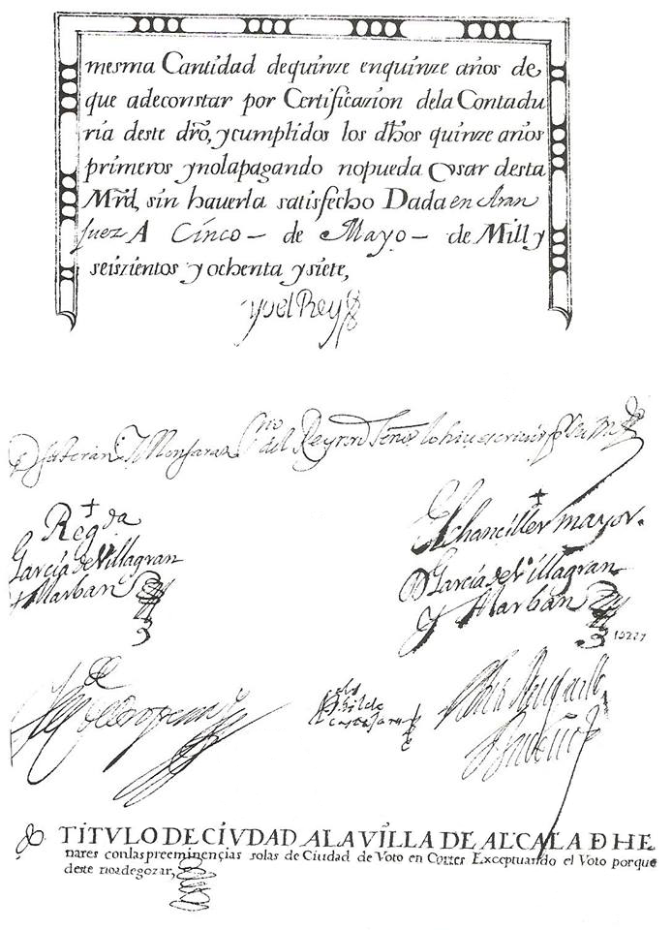 mesma Cantidad dequinze enquinze años de
que adeconstar por Certificazion dela Contadu
ría deste dr̃o, ycumplidos los dh̃os quinze años
primeros ynolapagando nopueda Vsar desta
Mr̃d, sin hauerla satisfecho Dada en Aran
juez A Cinco – de Mayo – de Mill y
seiszientos y ochenta ysiete,
yo el Rey
del Rey nro Señor lo hice escriuir por su m
Regda
García de Villagran
y Marban
El chanciller mayor.
D García de Villagran
Y Marban
TITVLO DE CIVDAD A LA VILLA DE ALCALA Đ HE
nares conlaspreeminençias solas de Ciudad de Voto en Cortes Exceptuando el Voto porque
deste noadegozar,